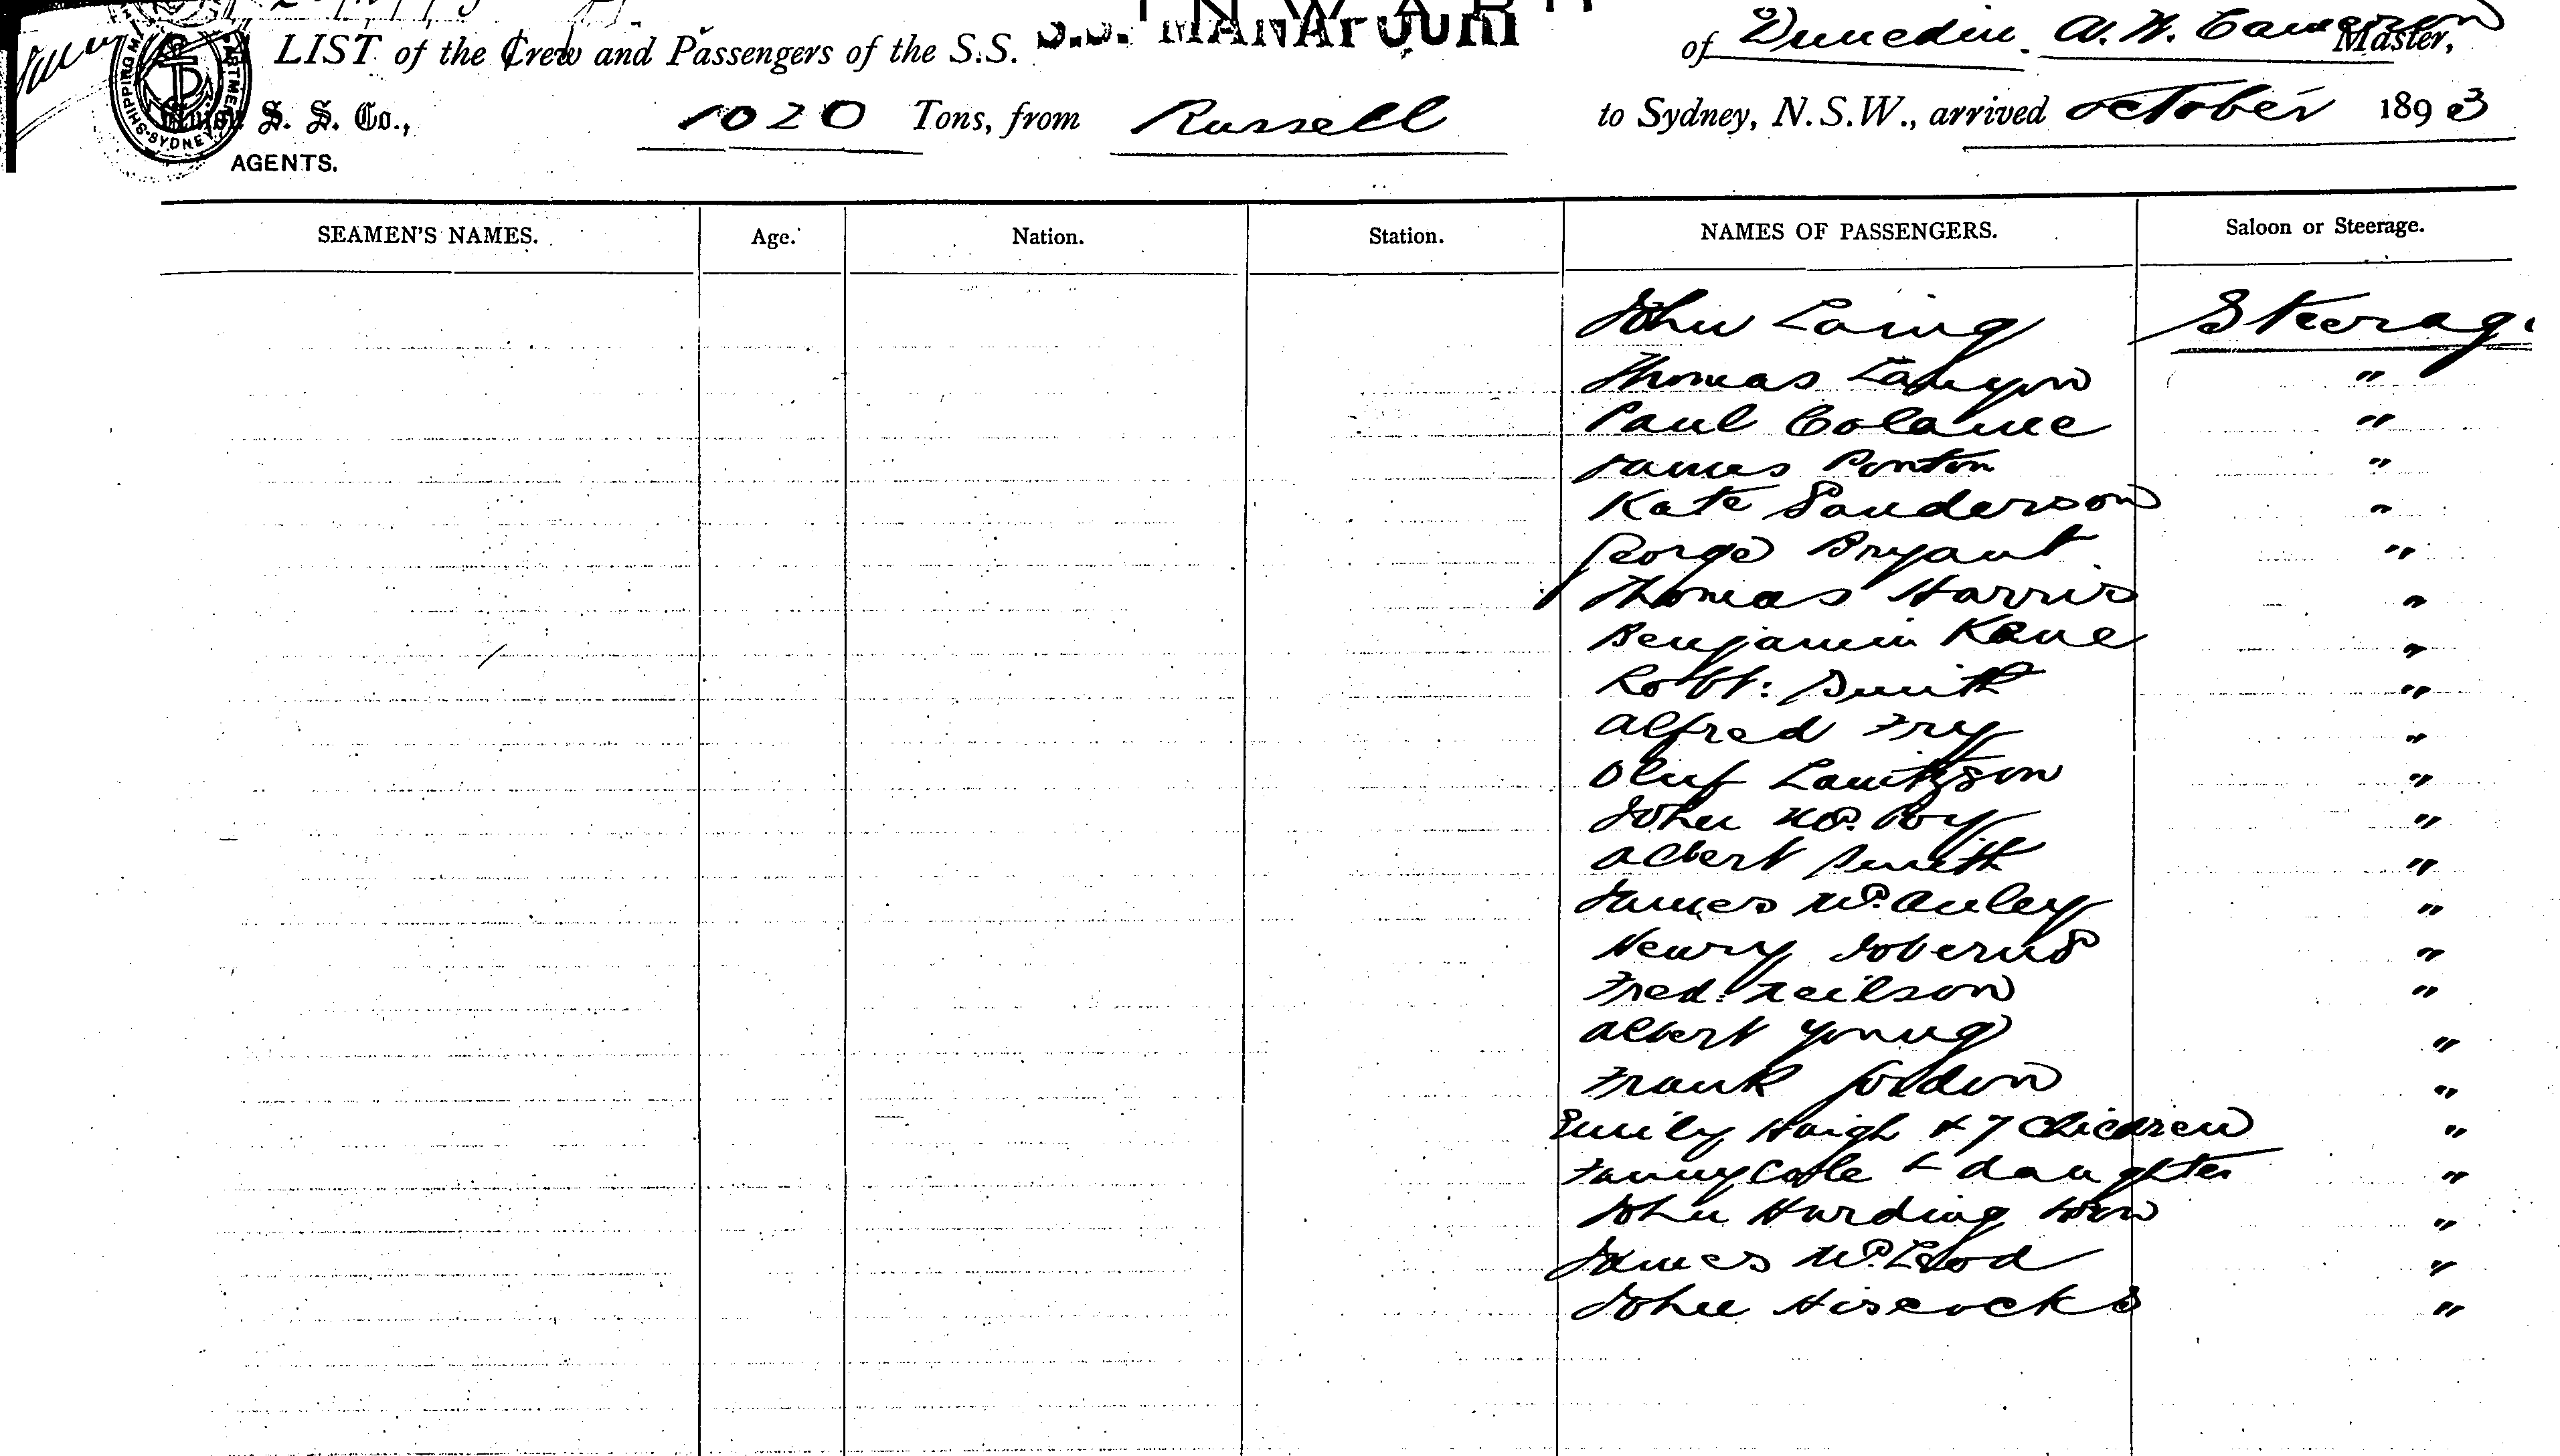 INWARD
LIST of the Crew and Passengers of the S.S. S.S. MANAPOURI of Dunedin. A. W. Cameron Master,
S. S. Co., 1020 Tons, from Russell to Sydney, N.S.W., arrived October 1893
AGENTS.
SEAMEN'S NAMES. Age. Nation. Station. NAMES OF PASSENGERS. Saloon or Steerage.
John Laing Steerage
Thomas Lanyon "
Paul Colame "
James Ponton "
Kate Sanderson "
George Bryant "
Thomas Harris "
Benjamin Kane "
Robt: Smith "
Alfred Fry "
Oluf Lauitzson "
John McCoy "
Albert Smith "
James McAuley "
Henry "
Fred. Neilson "
Albert Young "
Frank "
Emily Haigh & 7 Children "
Fanny Cole & daughter "
John Harding "
James McLeod "
John Hiscocks "